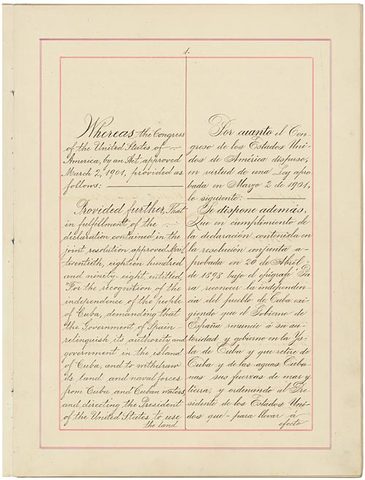 1.
Whereas the Congress
of the United States of
America, by an Act approved
March 2, 1901, provided as
follows:
Provided further, That
in fulfillment of the
declaration contained in the
joint resolution approved April
twentieth, eighteen hundred
and ninety-eight entitled
For the recognition of the
independence of the people
of Cuba, demanding that
the Government of Spain
relinquish its authority and
government in the island
of Cuba, and to withdraw
its land and naval forces
from Cuba and Cuban waters
and directing the President
of the United States to use
the land
Por cuanto el Con-
greso de los Estados Uni-
dos de América dispuso,
en virtud de una Ley apro-
bada en Marzo 2 de 1901,
lo siguiente:
Se dispone además,
Que en cumplimiento de
la declaración contenida en
la resolución conjunta a-
probada en 20 de Abril
de 1898 bajo el epígrafe Pa-
ra reconocer la independen-
cia del pueblo de Cuba exi-
giendo que el Gobierno de
España renuncie á su au-
toridad y gobierno en la Ys-
la de Cuba y que retire de
Cuba y de las aguas Cuba-
nas sus fuerzas de mar y
tierra y ordenando al Pre-
sidente de los Estados Uni-
dos que para llevar á
efecto